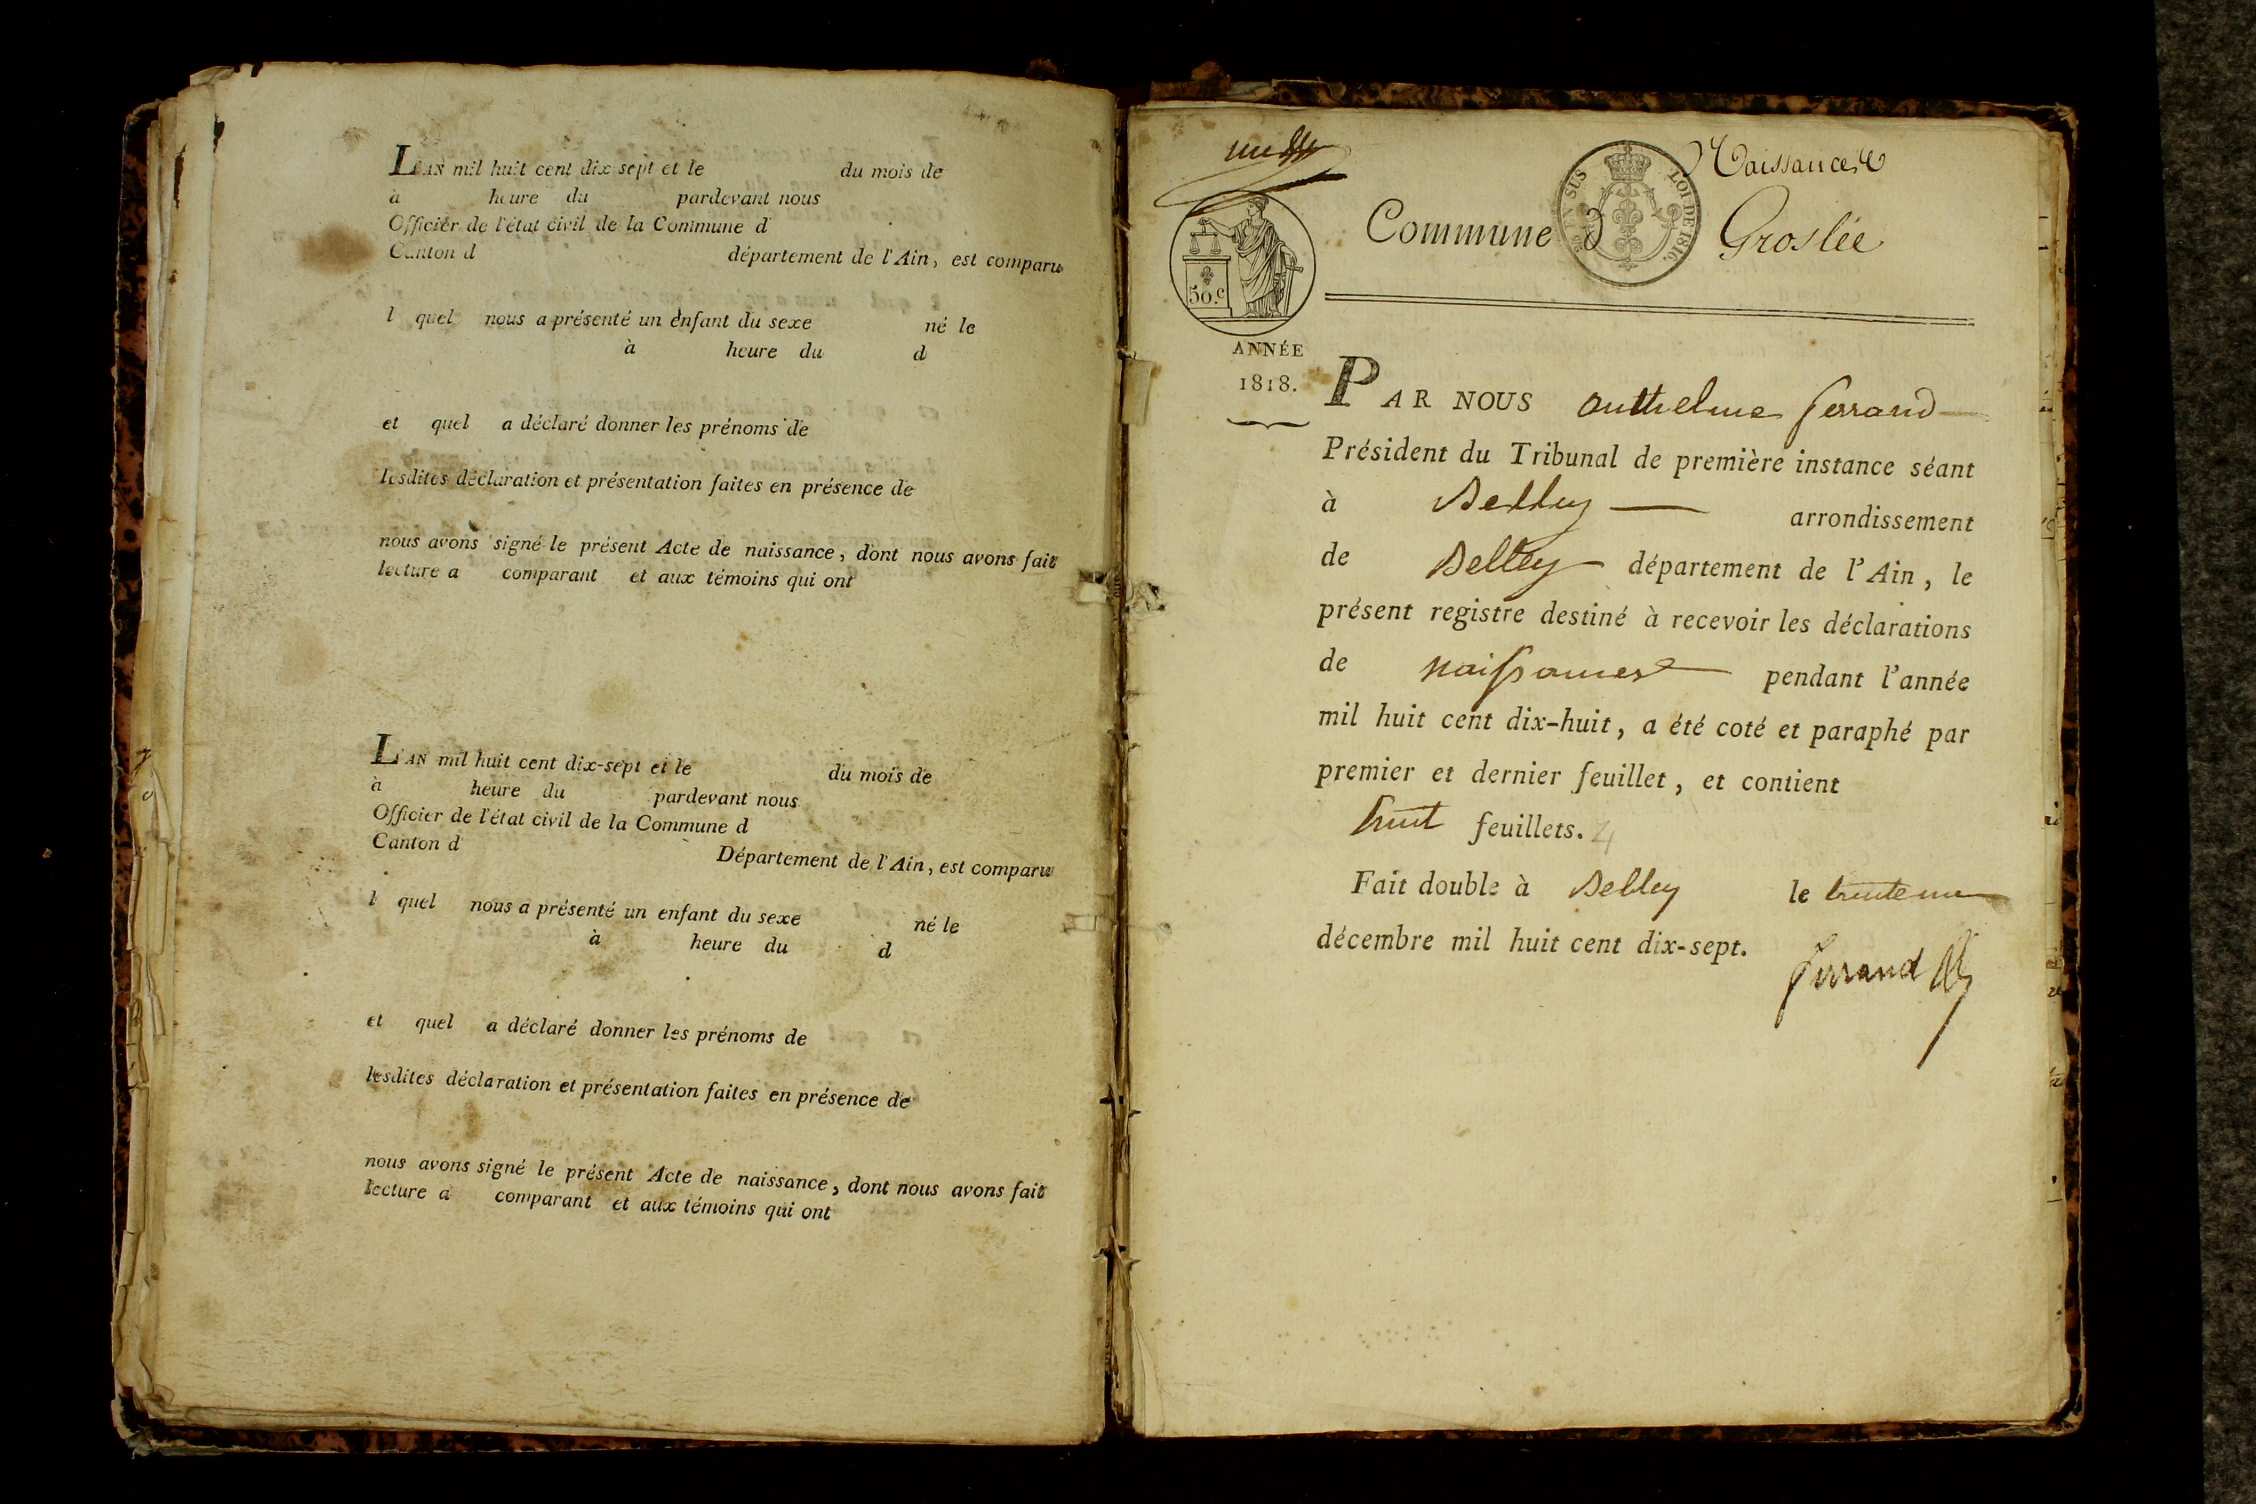 L'AN mil huit cent dix-sept et le du mois de
à heure du pardevant nous
Officier de l'état civil de la Commune d
Canton d département de l'Ain, est comparu
l quel nous a présenté un enfant du sexe né le
à heure du d
et quel a déclaré donner les prénoms de
lesdites déclaration et présentation faites en présence de
nous avons signé le présent Acte de naissance, dont nous avons fait
lecture a comparant et aux témoins qui ont
L'AN mil huit cent dix-sept et le du mois de
à heure du pardevant nous
Officier de l'état civil de la Commune d
Canton d Département de l'Ain, est comparu
l quel nous a présenté un enfant du sexe né le
à heure du d
et quel a déclaré donner les prénoms de
lesdites déclaration et présentation faites en présence de
nous avons signé le présent Acte de naissance, dont nous avons fait
lecture a comparant et aux témoins qui ont
Naissances
Commune d Groslée
EN SUS LOI DE 1816.
50.c
ANNÉE
1818.
PAR NOUS anthelme ferrand
Président du Tribunal de première instance séant
à Belley arrondissement
de Belley département de l'Ain, le
présent registre destiné à recevoir les déclarations
de naissances pendant l'année
mil huit cent dix-huit, a été coté et paraphé par
premier et dernier feuillet, et contient
huit feuillets. 4
Fait double à Belley le trente un
décembre mil huit cent dix-sept.
ferrand